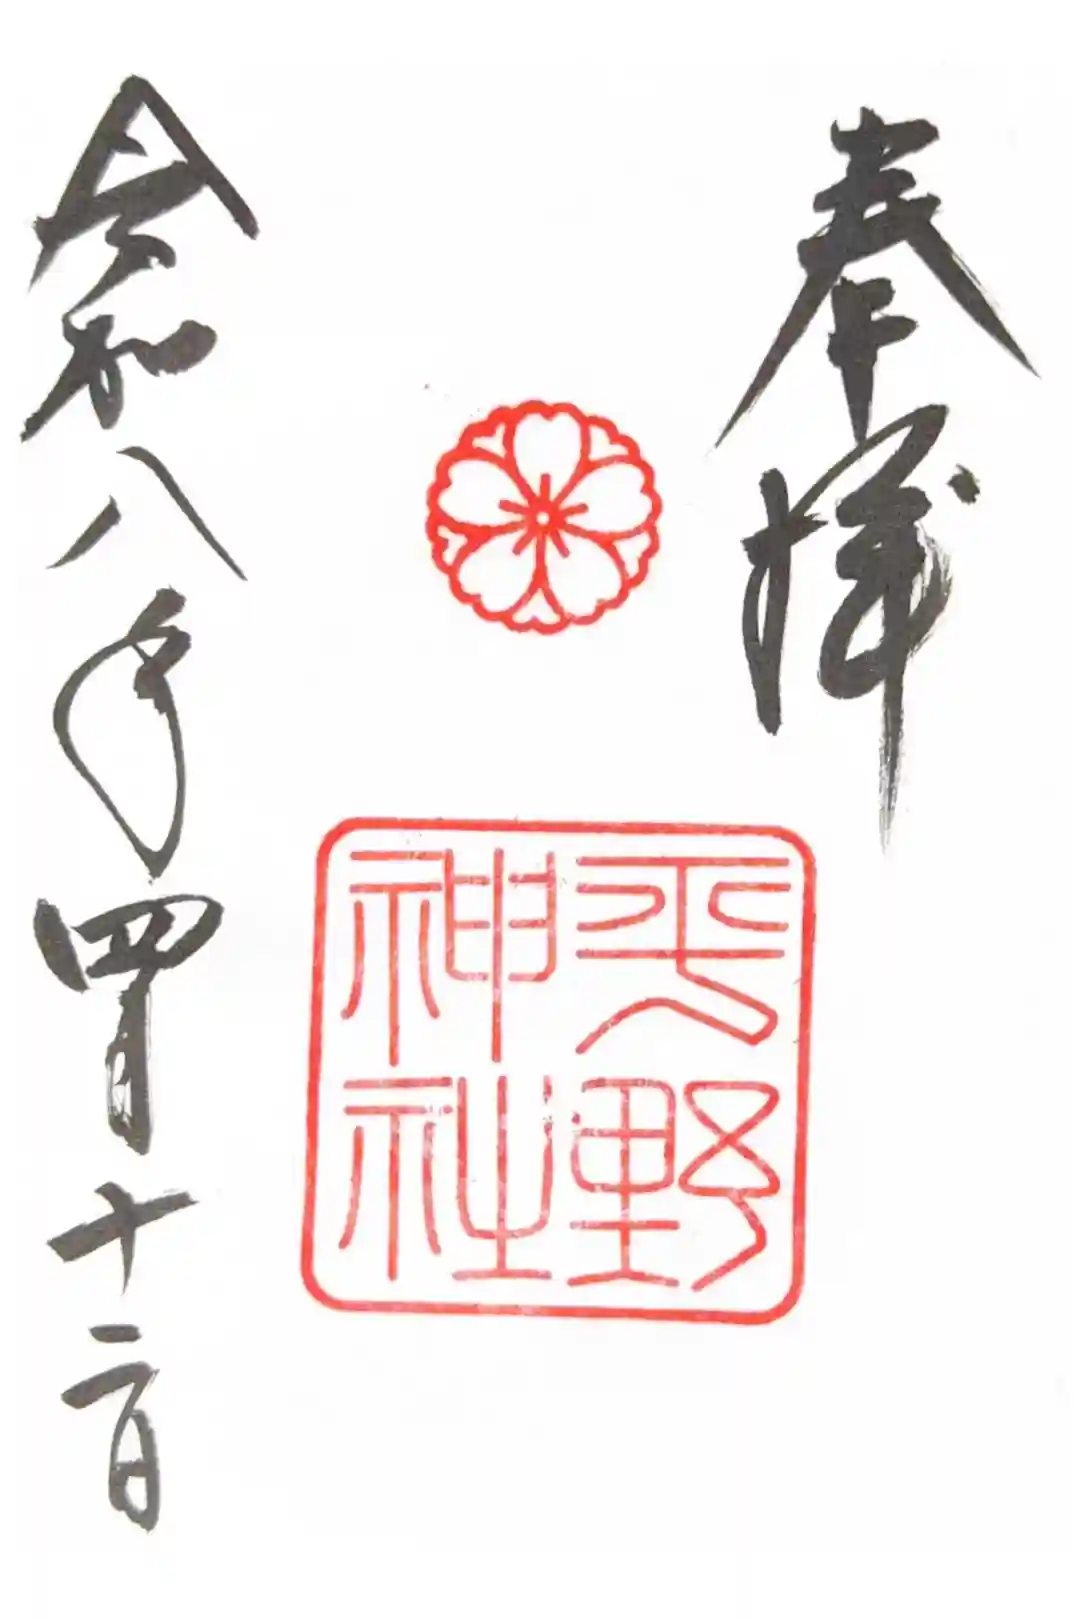 奉拝
平野
神社
令和八年四月十二日